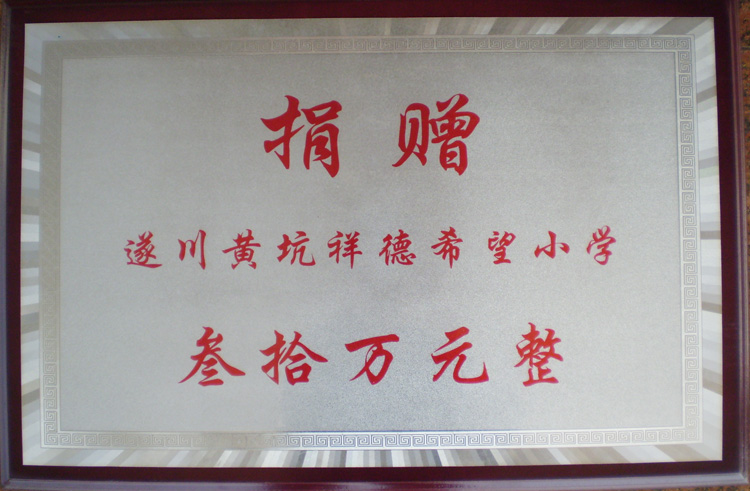 捐赠
遂川黄坑祥德希望小学
叁拾万元整